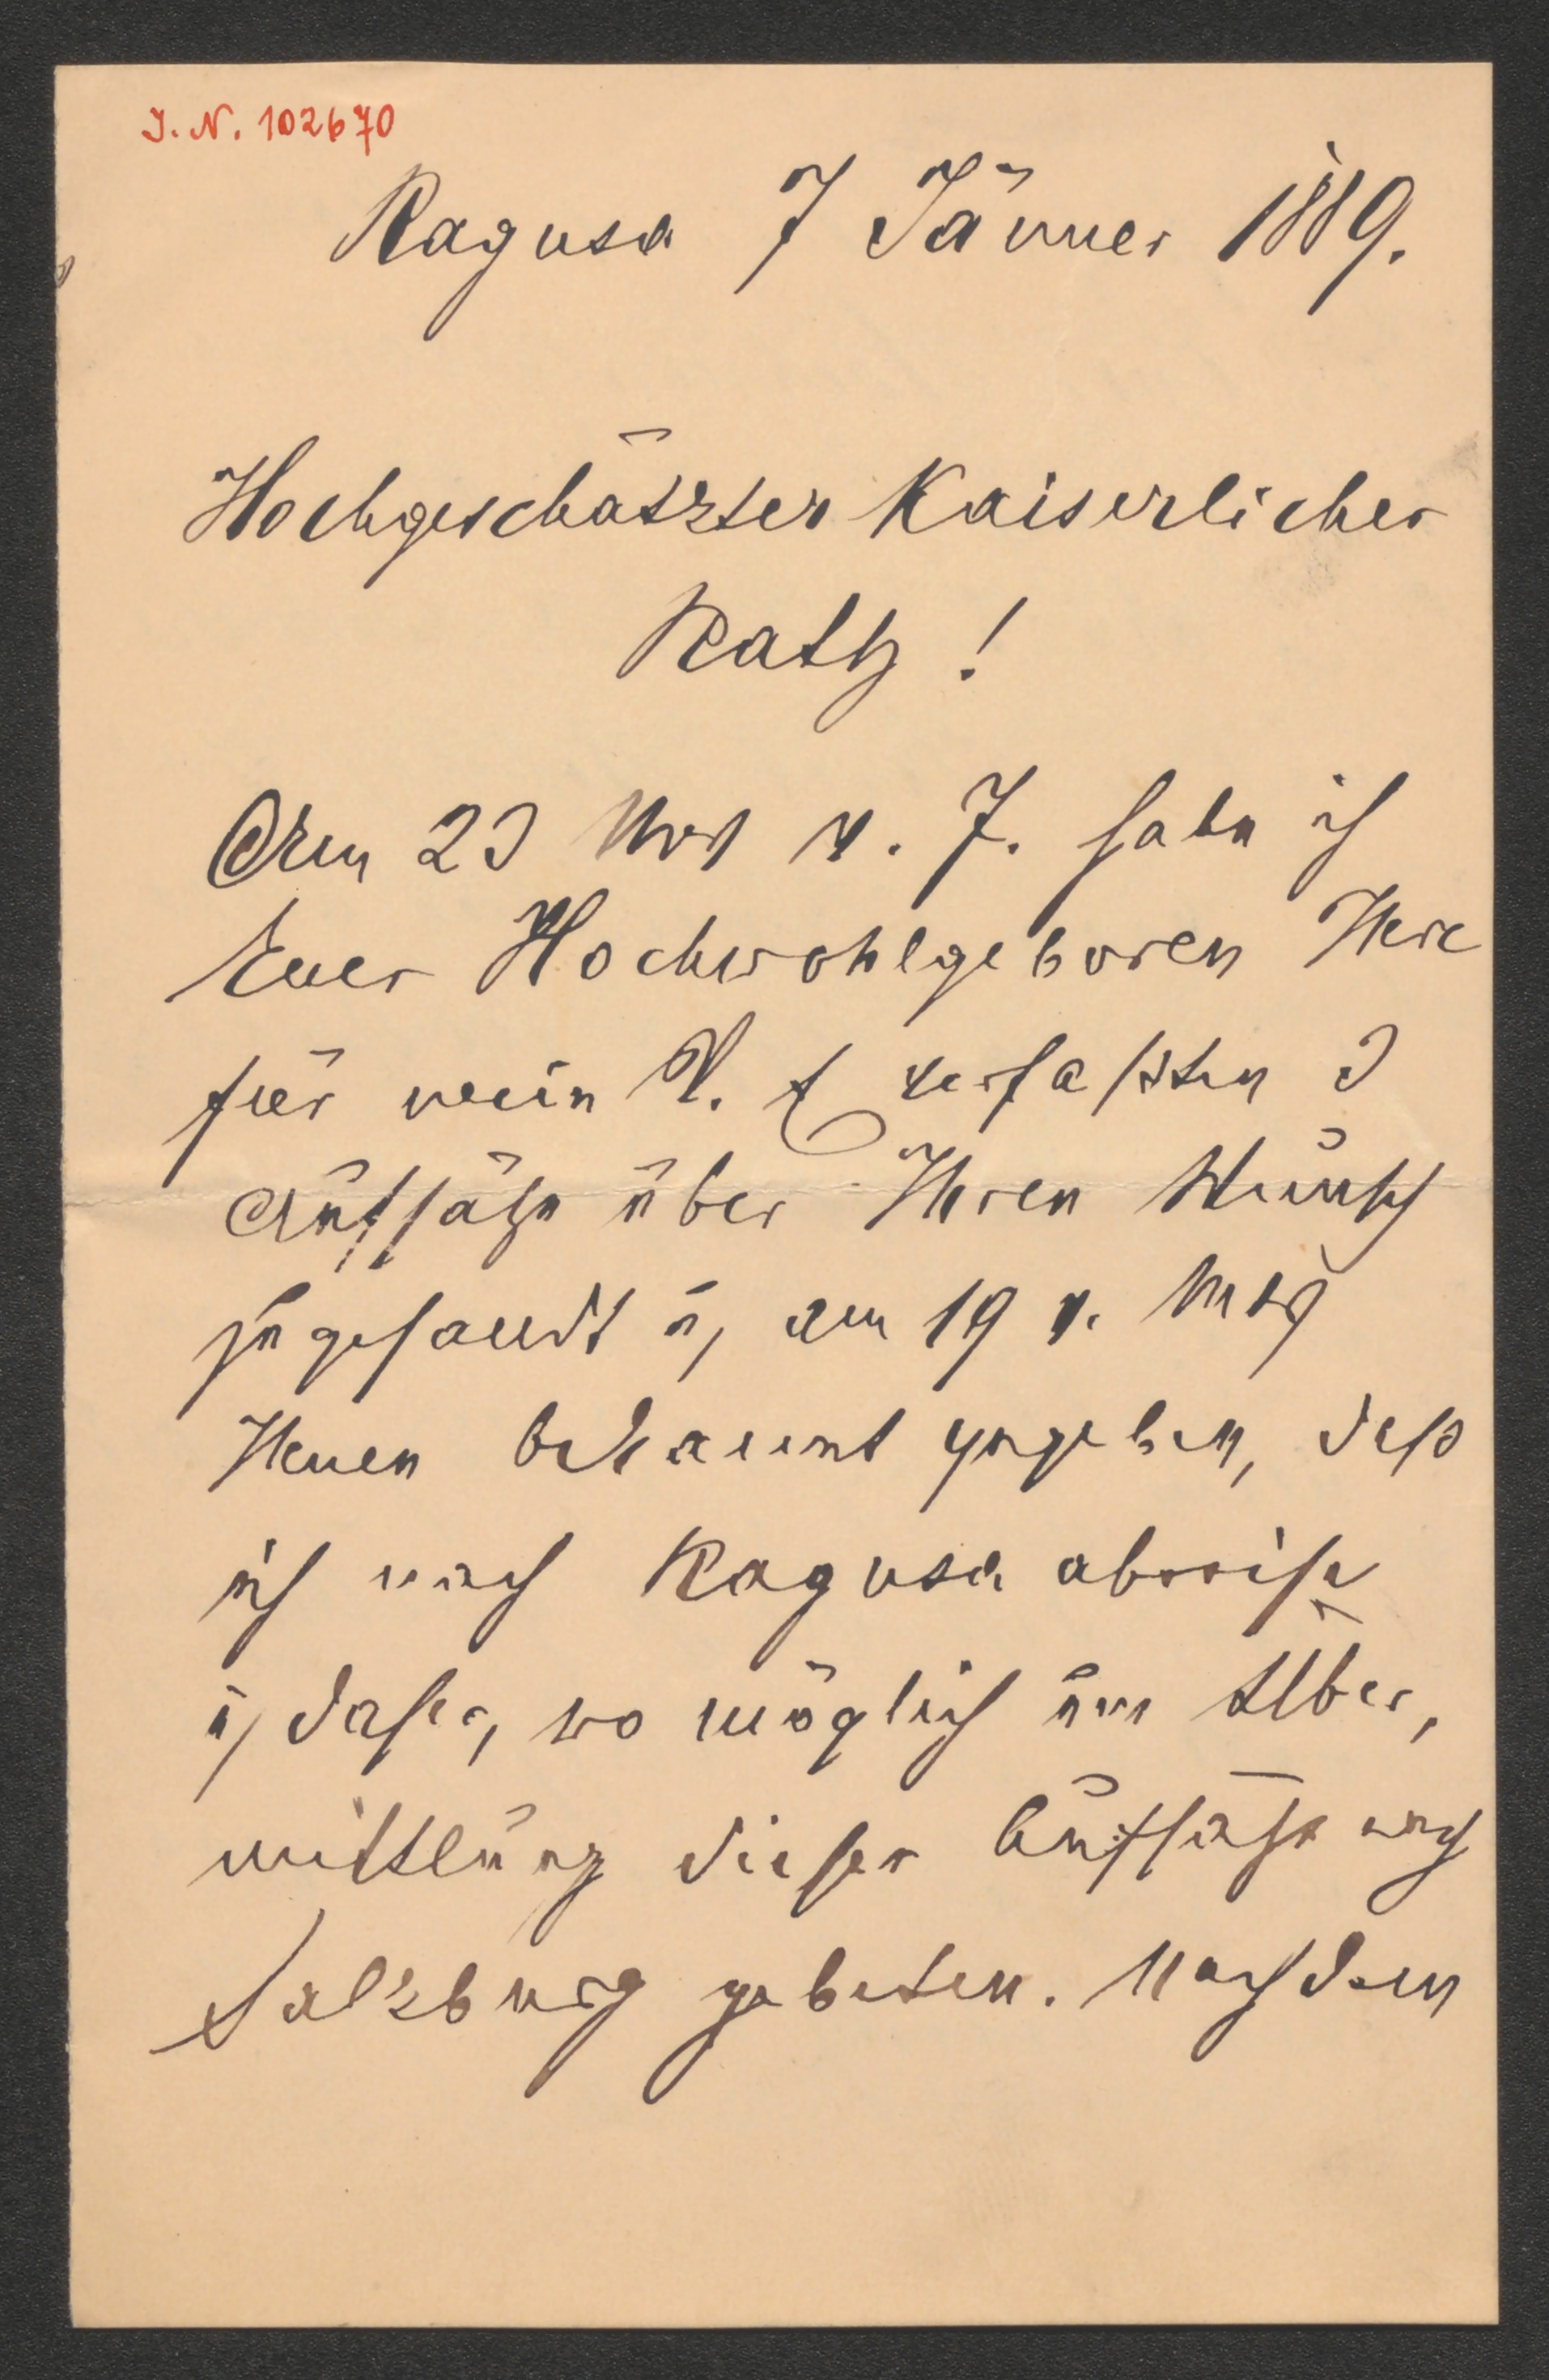 J. N. 102670
Ragusa 7 Jänner 1889.
Hochgeschätzter Kaiserlicher
Rath!
Am 23 Nov v. J. habe ich
Euer Hochwohlgeboren Ihre
für mein verfaßten 3
Aufsätze über Ihren Wunsch
zugesandt u, am 19 v. Mts
Ihnen bekannt gegeben, daß
ich nach Ragusa abreise
u, daher, wo möglich um Über,
mittlung dieser Aufsätze nach
Salzburg gebeten. Nachdem